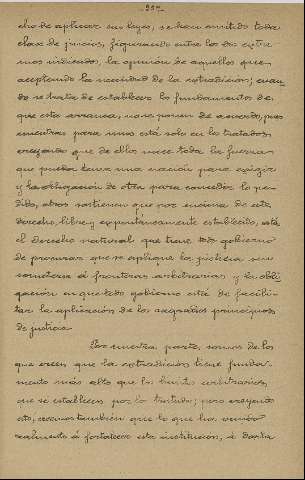 -207-
cho de aplicar sus leyes, se han emitido toda
clase de juicios, figurando entre los dos extre-
mos indicados, la opinión de aquellos que
aceptando la necesidad de la extradicion, cuan-
do se trata de establecer los fundamentos de
que esta arranca, no se ponen de acuerdo, pues
mientras para unos está solo en los tratados
creyendo que de ellos nace toda la fuerza
que pueda tener una nación para exigir
y la obligacion de otra para conceder lo pe-
dido, otros sostienen que por encima de este
derecho, libre y expontáneamente establecido, está
el derecho natural que tiene todo gobierno
de procurar que se aplique la justicia sin
someterse á fronteras arbitrarias y la obli-
gación en que todo gobierno está de facili-
tar la aplicación de los sagrados principios
de justicia.
Por nuestra parte, somos de los
que creen que la extradicion tiene funda-
mento más alto que los limites arbitrarios
que se establecen por los tratados; pero creyendo
esto, creemos también que lo que ha venido
realmente á fortalecer esta institucion, á darla